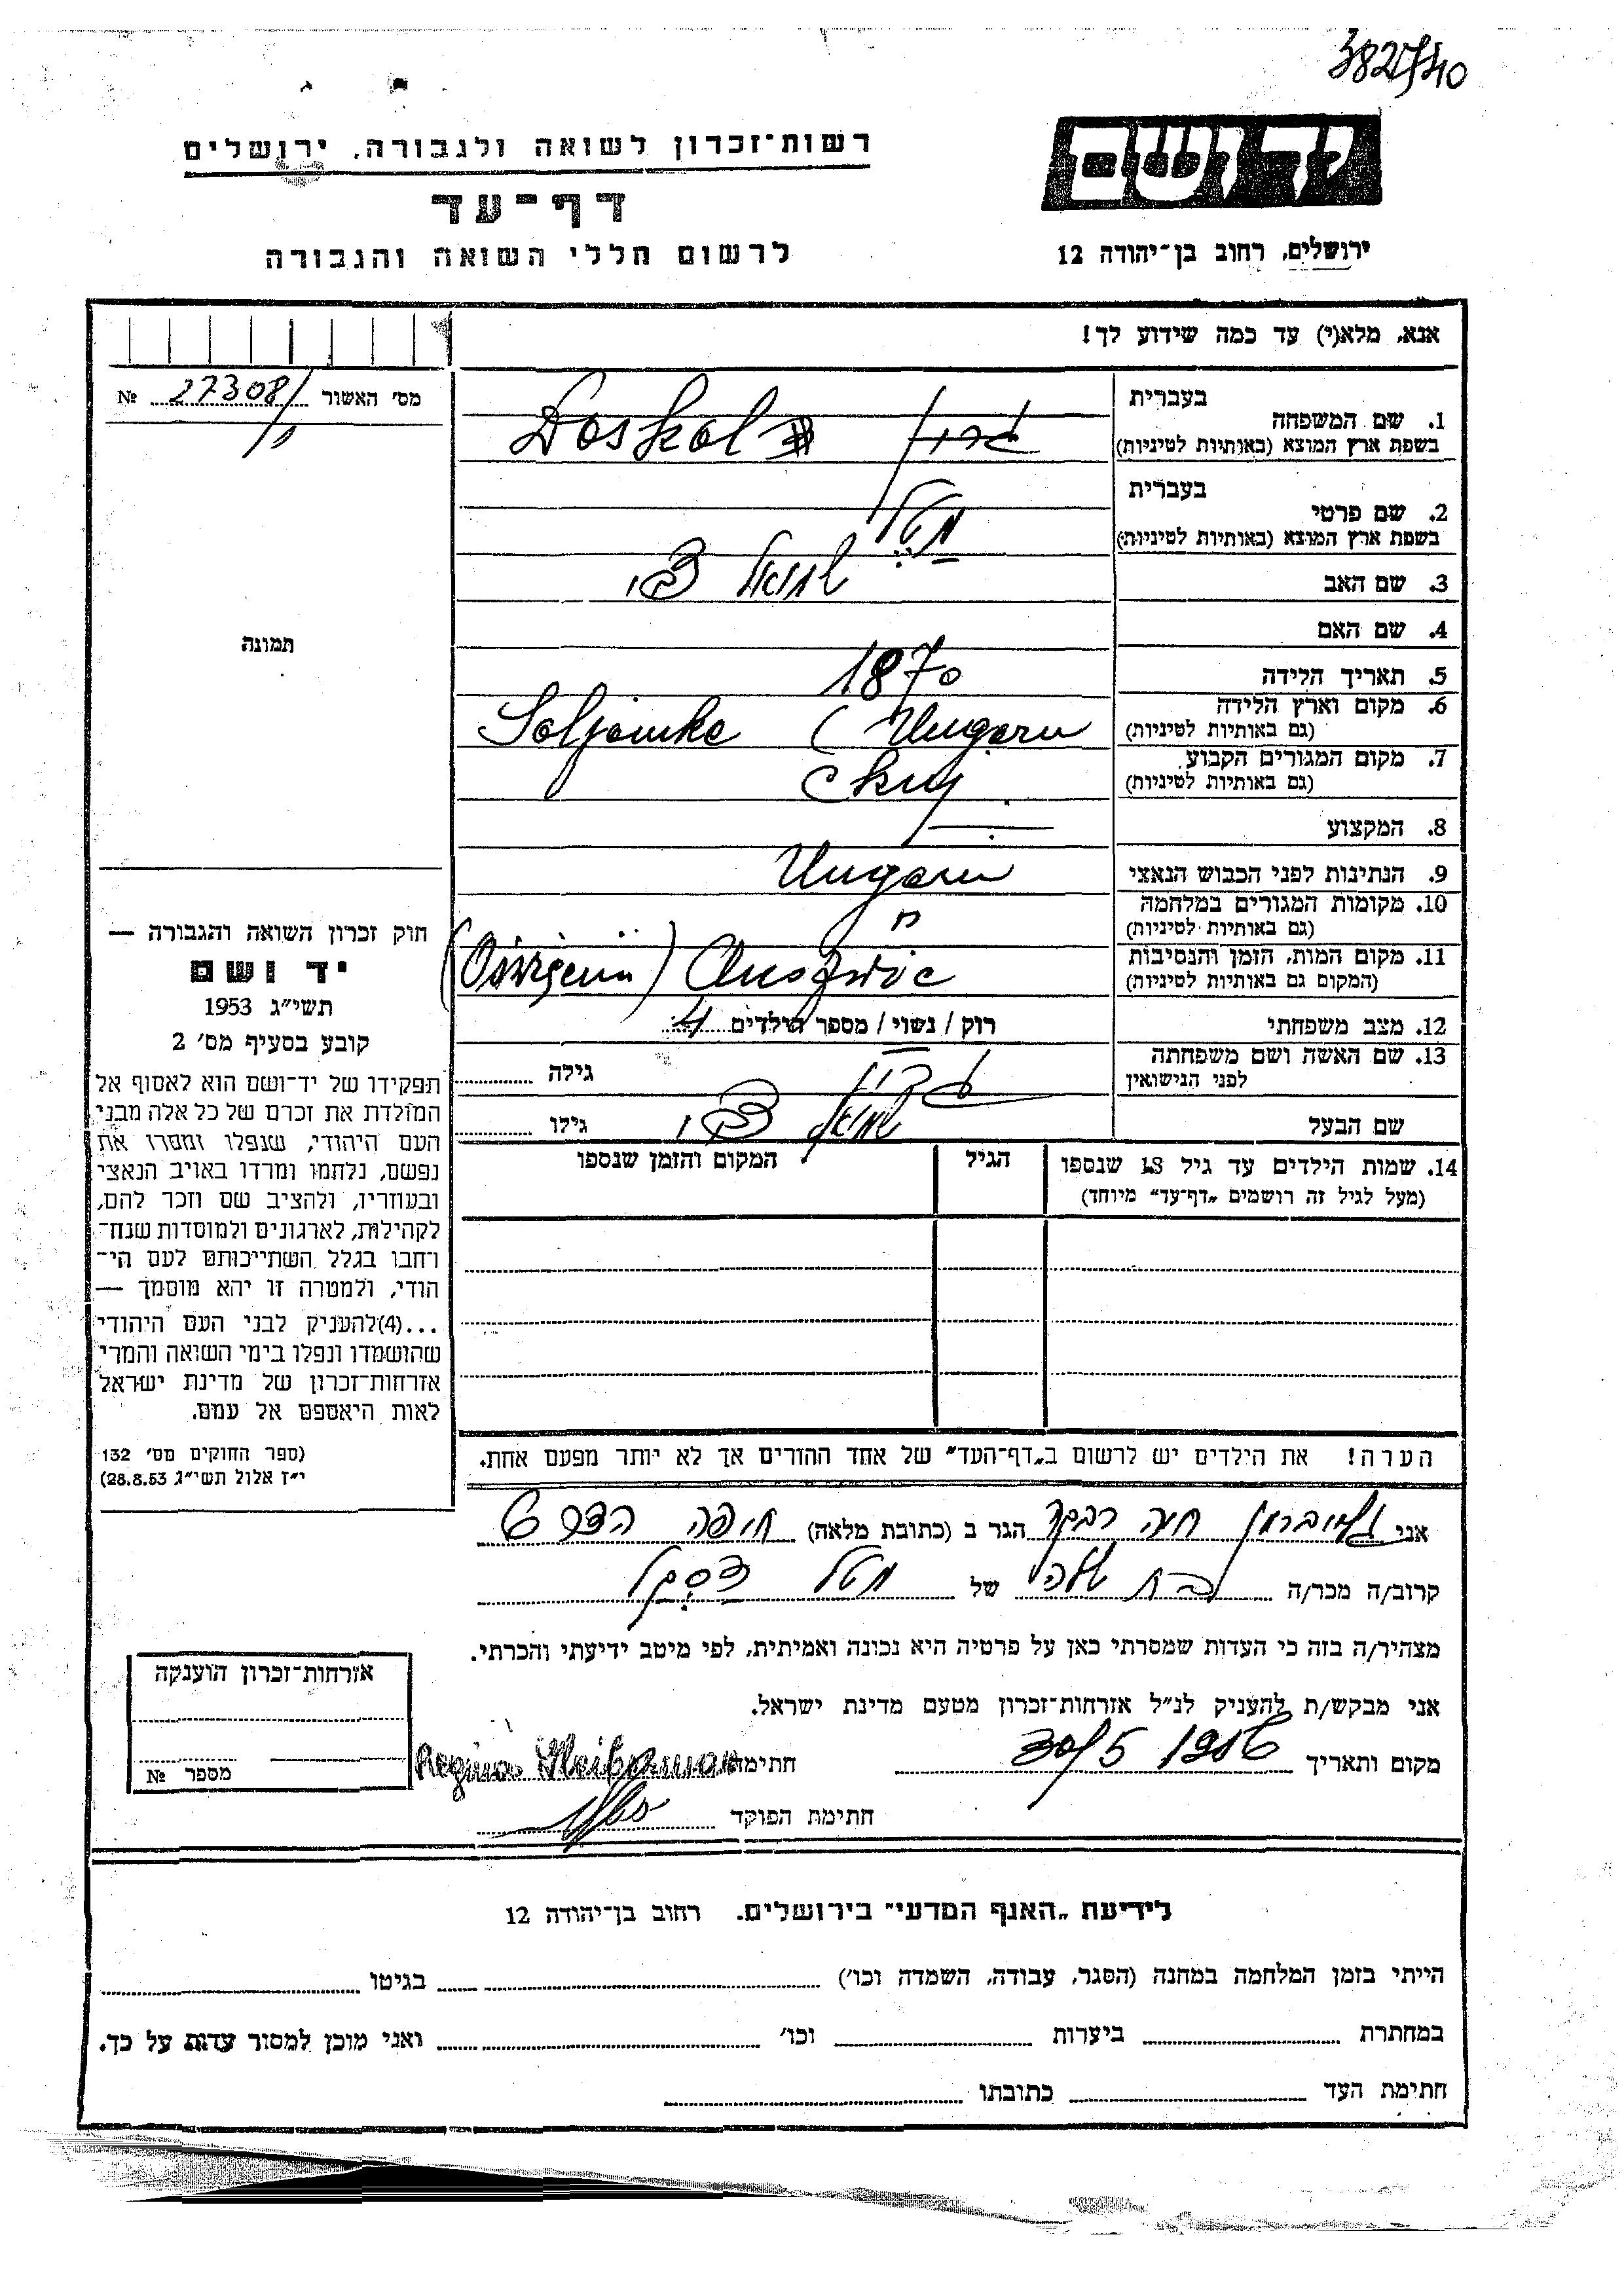 382/40
רשות־זכרון לשואה ולגבורה, ירושלים
יד ושם
דף־עד
לרשום חללי השואה והגבורה
ירושלים, רחוב בן־יהודה 12
אנא, מלא(י) עד כמה שידוע לך!
מס׳ האשור 27308 №
1. שם המשפחה
בעברית
בשפת ארץ המוצא (באותיות לטיניות)
Doskal
2. שם פרטי
בעברית
בשפת ארץ המוצא (באותיות לטיניות)
מטל
3. שם האב שמואל צבי
4. שם האם
תמונה
5. תאריך הלידה 1870
6. מקום וארץ הלידה
(גם באותיות לטיניות)
Ungarn
7. מקום המגורים הקבוע
(גם באותיות לטיניות)
8. המקצוע —
9. הנתינות לפני הכבוש הנאצי Ungarn
10. מקומות המגורים במלחמה
(גם באותיות לטיניות)
11. מקום המות, הזמן והנסיבות
(המקום גם באותיות לטיניות)
12. מצב משפחתי רוק / נשוי / מספר הילדים 4
13. שם האשה ושם משפחתה
לפני הנישואין
גילה
שם הבעל שמואל צבי גילו
14. שמות הילדים עד גיל 18 שנספו
(מעל לגיל זה רושמים „דף־עד״ מיוחד)
הגיל
המקום והזמן שנספו
חוק זכרון השואה והגבורה —
יד ושם
תשי״ג 1953
קובע בסעיף מס׳ 2
תפקידו של יד־ושם הוא לאסוף אל
המולדת את זכרם של כל אלה מבני
העם היהודי, שנפלו ומסרו את
נפשם, נלחמו ומרדו באויב הנאצי
ובעוזריו, ולהציב שם וזכר להם,
לקהילות, לארגונים ולמוסדות שנח־
רחבו בגלל השתייכותם לעם הי־
הודי, ולמטרה זו יהא מוסמך —
...(4)להעניק לבני העם היהודי
שהושמדו ונפלו בימי השואה והמרי
אזרחות־זכרון של מדינת ישראל
לאות היאספם אל עמם.
(ספר החוקים מס׳ 132
י״ז אלול תשי״ג 28.8.53)
הערה! את הילדים יש לרשום ב„דף־העד״ של אחד ההורים אך לא יותר מפעם אחת.
אני חיה הגר ב (כתובת מלאה) חיפה
קרוב/ה מכר/ה של מטל דסקל
מצהיר/ה בזה כי העדות שמסרתי כאן על פרטיה היא נכונה ואמיתית, לפי מיטב ידיעתי והכרתי.
אני מבקש/ת להעניק לנ״ל אזרחות־זכרון מטעם מדינת ישראל.
מקום ותאריך 30/5 1956 חתימה Regina
חתימת הפוקד
אזרחות־זכרון הוענקה
מספר №
לידיעת „האגף המדעי״ בירושלים, רחוב בן־יהודה 12
הייתי בזמן המלחמה במחנה (הסגר, עבודה, השמדה וכו׳) בגיטו
במחתרת ביערות וכו׳ ואני מוכן למסור עדות על כך.
חתימת העד כתובתו